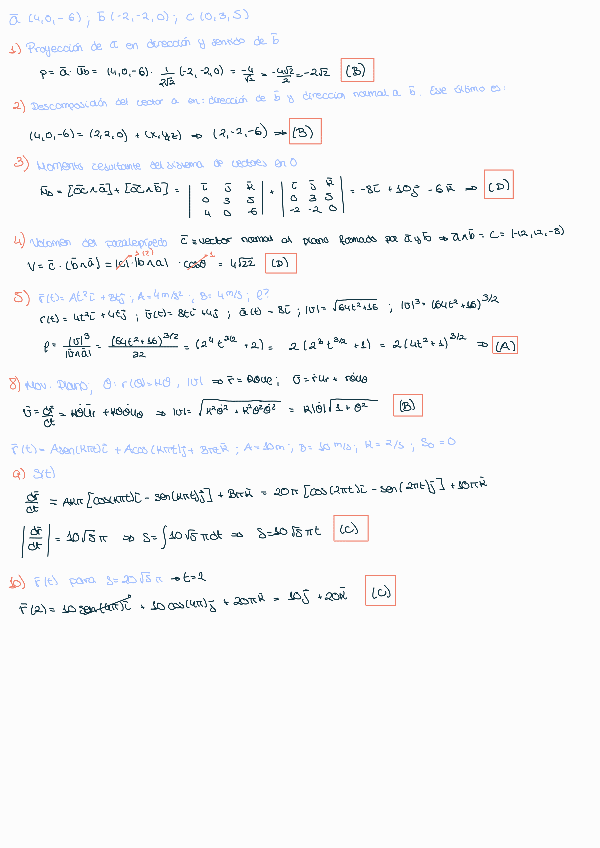 ā (4,0,-6) ; b̄ (-2,-2,0) ; c (0,3,5)
1) Proyección de a en dirección y sentido de b̄
p = ā · ūb = (4,0,-6) · 1/(2√2) (-2,-2,0) = -4/√2 = -4√2/2 = -2√2 (B)
2) Descomposición del vector a en: dirección de b̄ y dirección normal a b̄. Este último es:
(4,0,-6) = (2,2,0) + (x,y,z) ⇒ (2,-2,-6) ⇒ (B)
3) Momento resultante del sistema de vectores en O
N̄o = [ōc∧ā] + [ōc∧b̄] = | ī j̄ k̄ ; 0 3 5 ; 4 0 -6 | + | ī j̄ k̄ ; 0 3 5 ; -2 -2 0 | = -8ī + 10j̄ - 6k̄ ⇒ (D)
4) Volumen del paralepípedo c̄ = vector normal al plano formado por ā y b̄ ⇒ ā∧b̄ = c = (-12,12,-8)
V = c̄ · (b̄∧ā) = |c| · |b∧a| · cosθ = 4√22 (D)
5) r̄(t) = At²ī + Btj̄ ; A = 4m/s² ; B = 4m/s ; ρ?
r(t) = 4t²ī + 4tj̄ ; v̄(t) = 8tī + 4j̄ ; ā(t) = 8ī ; |v| = √(64t²+16) ; |v|³ = (64t²+16)^3/2
ρ = |v|³/|v∧a| = (64t²+16)^3/2 / 32 = (2⁴ t^3/2 + 2) = 2(2³ t^3/2 + 1) = 2(4t²+1)^3/2 ⇒ (A)
8) Mov. Plano, θ: r(θ) = kθ, |v| ⇒ r̄ = kθūr ; v̄ = ṙūr + rθ̇ūθ
v̄ = dr̄/dt = kθ̇ūr + kθθ̇ūθ ⇒ |v| = √(k²θ̇² + k²θ²θ̇²) = k|θ̇|√(1+θ²) (B)
r̄(t) = A sen(kπt)ī + A cos(kπt)j̄ + Bπtk̄ ; A = 10m ; B = 10 m/s ; k = 2/s ; S₀ = 0
9) S(t)
dr̄/dt = Akπ [cos(kπt)ī - sen(kπt)j̄] + Bπk̄ = 20π [cos(2πt)ī - sen(2πt)j̄] + 10πk̄
|dr̄/dt| = 10√5π ⇒ S = ∫10√5πdt ⇒ S = 10√5πt (C)
10) r̄(t) para S = 20√5π → t = 2
r̄(2) = 10 sen(4π)ī + 10 cos(4π)j̄ + 20πk̄ = 10j̄ + 20k̄ (C)